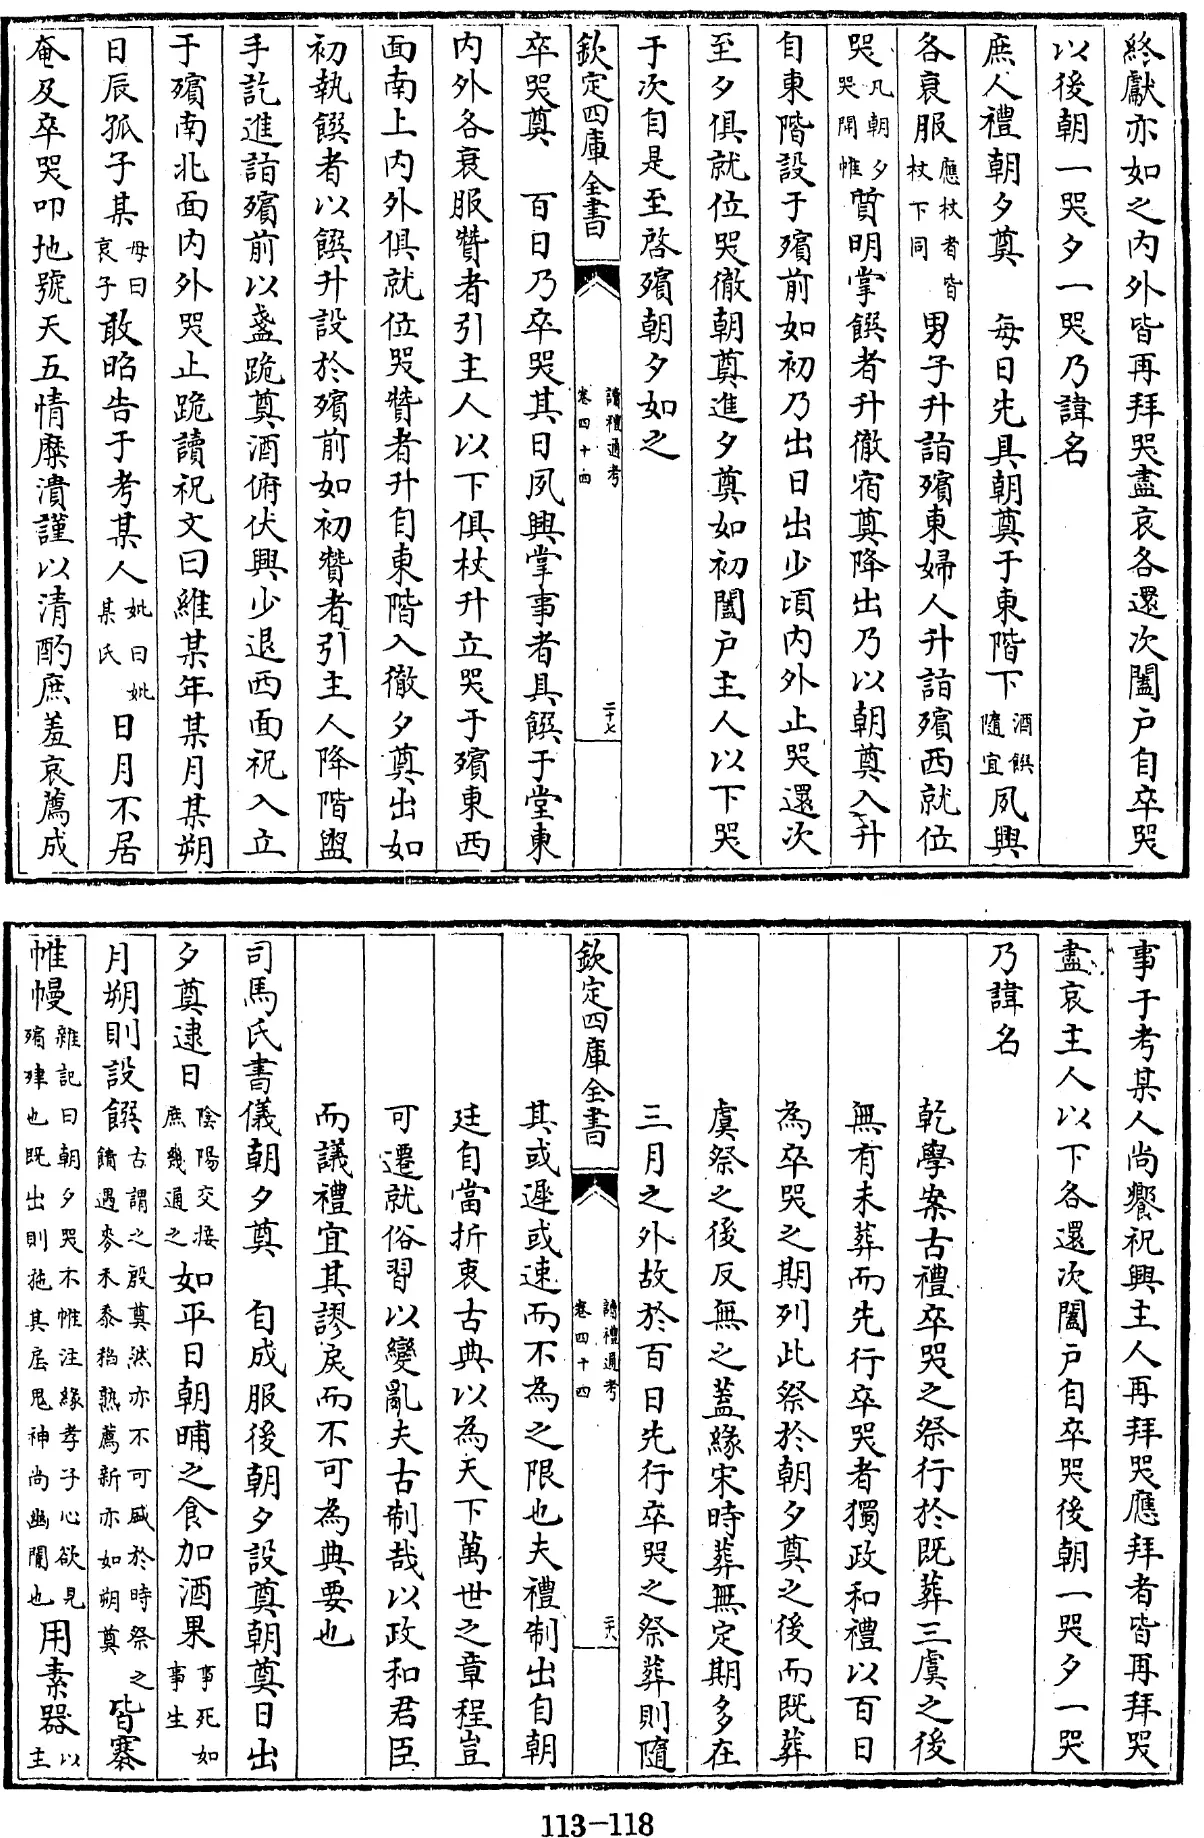 終獻亦如之内外皆再拜哭盡哀各還次闔户自卒哭
以後朝一哭夕一哭乃諱名
庶人禮朝夕奠　每日先具朝奠于東階下酒饌隨宜夙興
各衰服應杖者皆杖下同男子升詣殯東婦人升詣殯西就位
哭凡朝夕哭開帷質明掌饌者升徹宿奠降出乃以朝奠入升
自東階設于殯前如初乃出日出少頃内外止哭還次
至夕俱就位哭徹朝奠進夕奠如初闔户主人以下哭
于次自是至啓殯朝夕如之
欽定四庫全書　讀禮通考卷四十四　二十七
卒哭奠　百日乃卒哭其日夙興掌事者具饌于堂東
内外各衰服贊者引主人以下俱杖升立哭于殯東西
面南上内外俱就位哭贊者升自東階入徹夕奠出如
初執饌者以饌升設於殯前如初贊者引主人降階盥
手訖進詣殯前以盞跪奠酒俯伏興少退西面祝入立
于殯南北面内外哭止跪讀祝文曰維某年某月某朔
日辰孤子某母曰哀子敢昭告于考某人妣曰妣某氏日月不居
奄及卒哭叩地號天五情糜潰謹以清酌庶羞哀薦成
事于考某人尚饗祝興主人再拜哭應拜者皆再拜哭
盡哀主人以下各還次闔户自卒哭後朝一哭夕一哭
乃諱名
乾學案古禮卒哭之祭行於既葬三虞之後
無有未葬而先行卒哭者獨政和禮以百日
為卒哭之期列此祭於朝夕奠之後而既葬
虞祭之後反無之蓋緣宋時葬無定期多在
三月之外故於百日先行卒哭之祭葬則隨
欽定四庫全書　讀禮通考卷四十四　二十八
其或遲或速而不為之限也夫禮制出自朝
廷自當折衷古典以為天下萬世之章程豈
可遷就俗習以變亂夫古制哉以政和君臣
而議禮宜其謬戾而不可為典要也
司馬氏書儀朝夕奠　自成服後朝夕設奠朝奠日出
夕奠逮日陰陽交接庶幾通之如平日朝晡之食加酒果事死如事生
月朔則設饌古謂之殷奠然亦不可盛於時祭之饋遇麥禾黍稻熟薦新亦如朔奠皆褰
帷幔雜記曰朝夕哭不帷注緣孝子心欲見殯肂也既出則施其扆鬼神尚幽闇也用素器以主
113-118